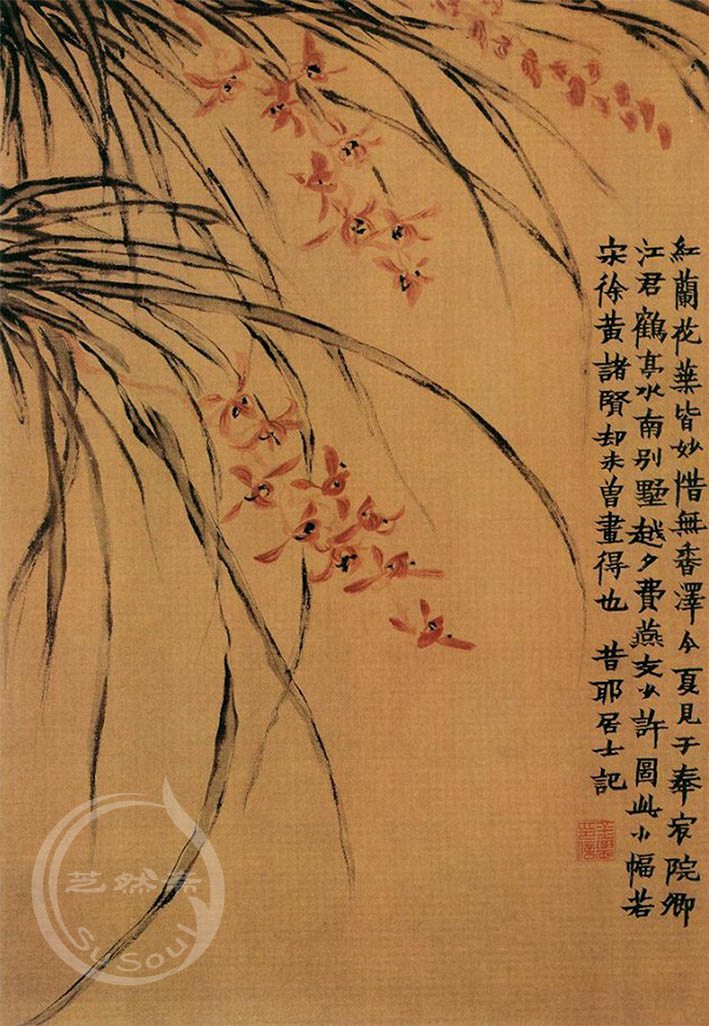 紅蘭花葉皆妙惜無香澤今夏見于奉宸院卿
江君鶴亭水南別墅越夕費燕支少許圖此小幅若
宋徐黃諸賢却未曾畫得也 昔耶居士記
金農印信
SuSoul